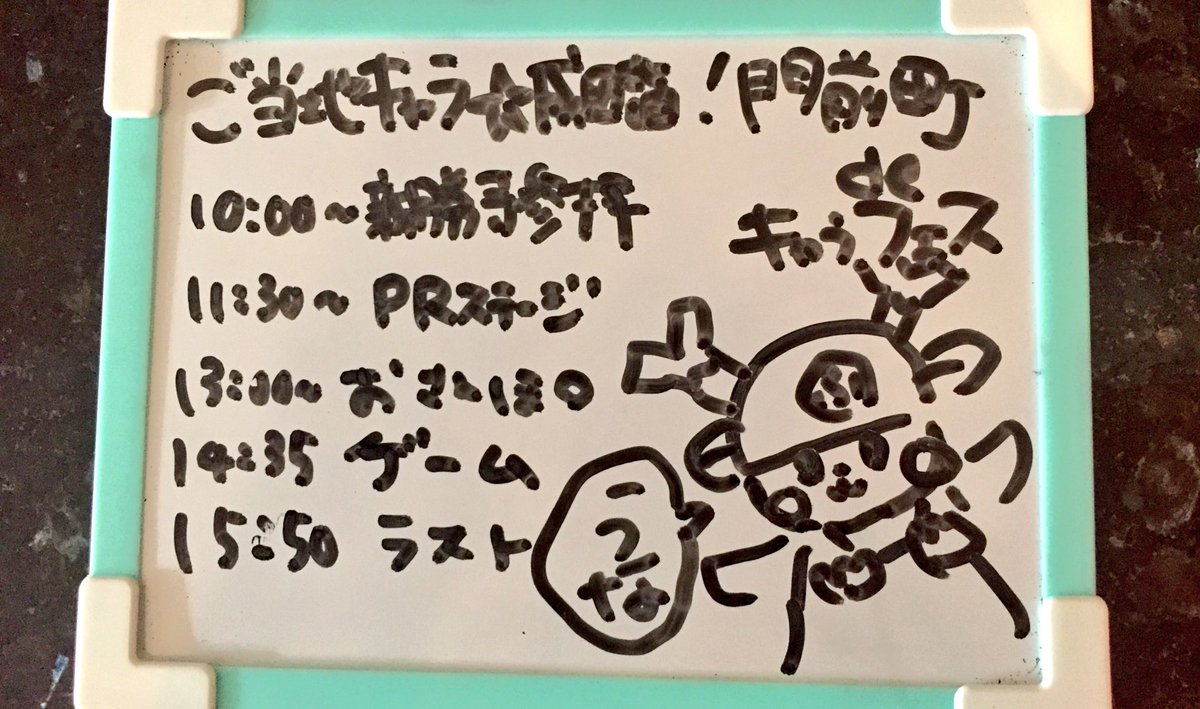 ご当地キャラ☆成田詣!門前町
de
キャラフェス
10:00~新勝寺参拝
11:30~PRステージ
13:00~おさんぽ
14:35 ゲーム
15:50 ラスト